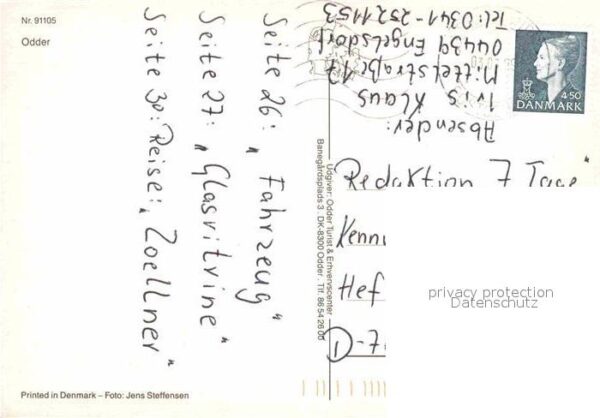 Nr. 91105
Odder
Seite 26: „Fahrzeug"
Seite 27: „Glasvitrine"
Seite 30: Reise: „Zoellner"
Udgiver: Odder Turist & Erhvervscenter
Banegårdsplads 3 . DK-8300 Odder . Tlf. 86 54 26 00
Absender:
Iris Klaus
Mittelstraße 17
04439 Engelsdorf
Tel.: 0341-2521153
4.50
DANMARK
Redaktion 7 Tage"
Kenn
Hef
D-7
privacy protection
Datenschutz
Printed in Denmark – Foto: Jens Steffensen